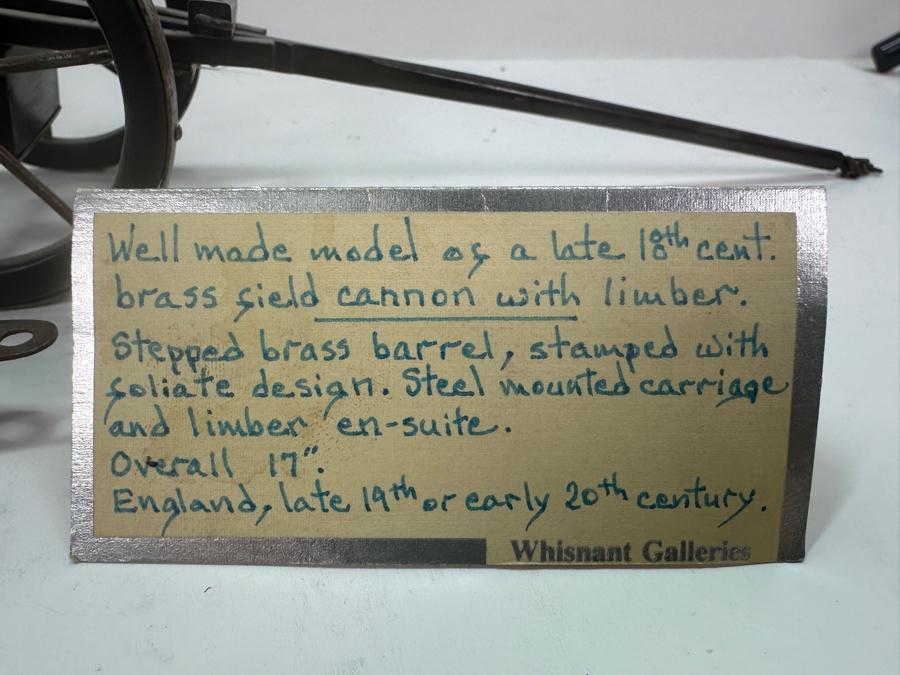 Well made model of a late 18th cent.
brass field cannon with limber.
Stepped brass barrel, stamped with
foliate design. Steel mounted carriage
and limber en-suite.
Overall 17".
England, late 19th or early 20th century.
Whisnant Galleries